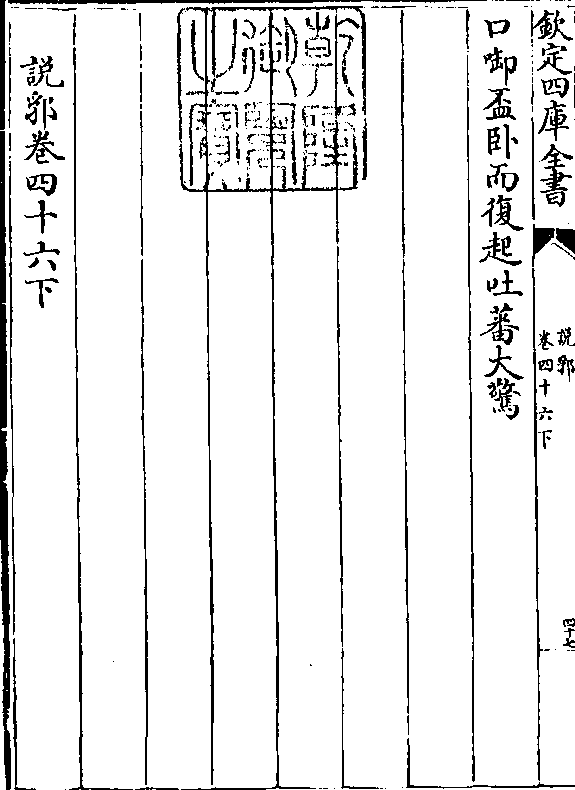 欽定四庫全書
説郛
卷四十六下
四十七
口啣盃卧而復起吐蕃大驚
乾隆
御覽
之寶
説郛卷四十六下